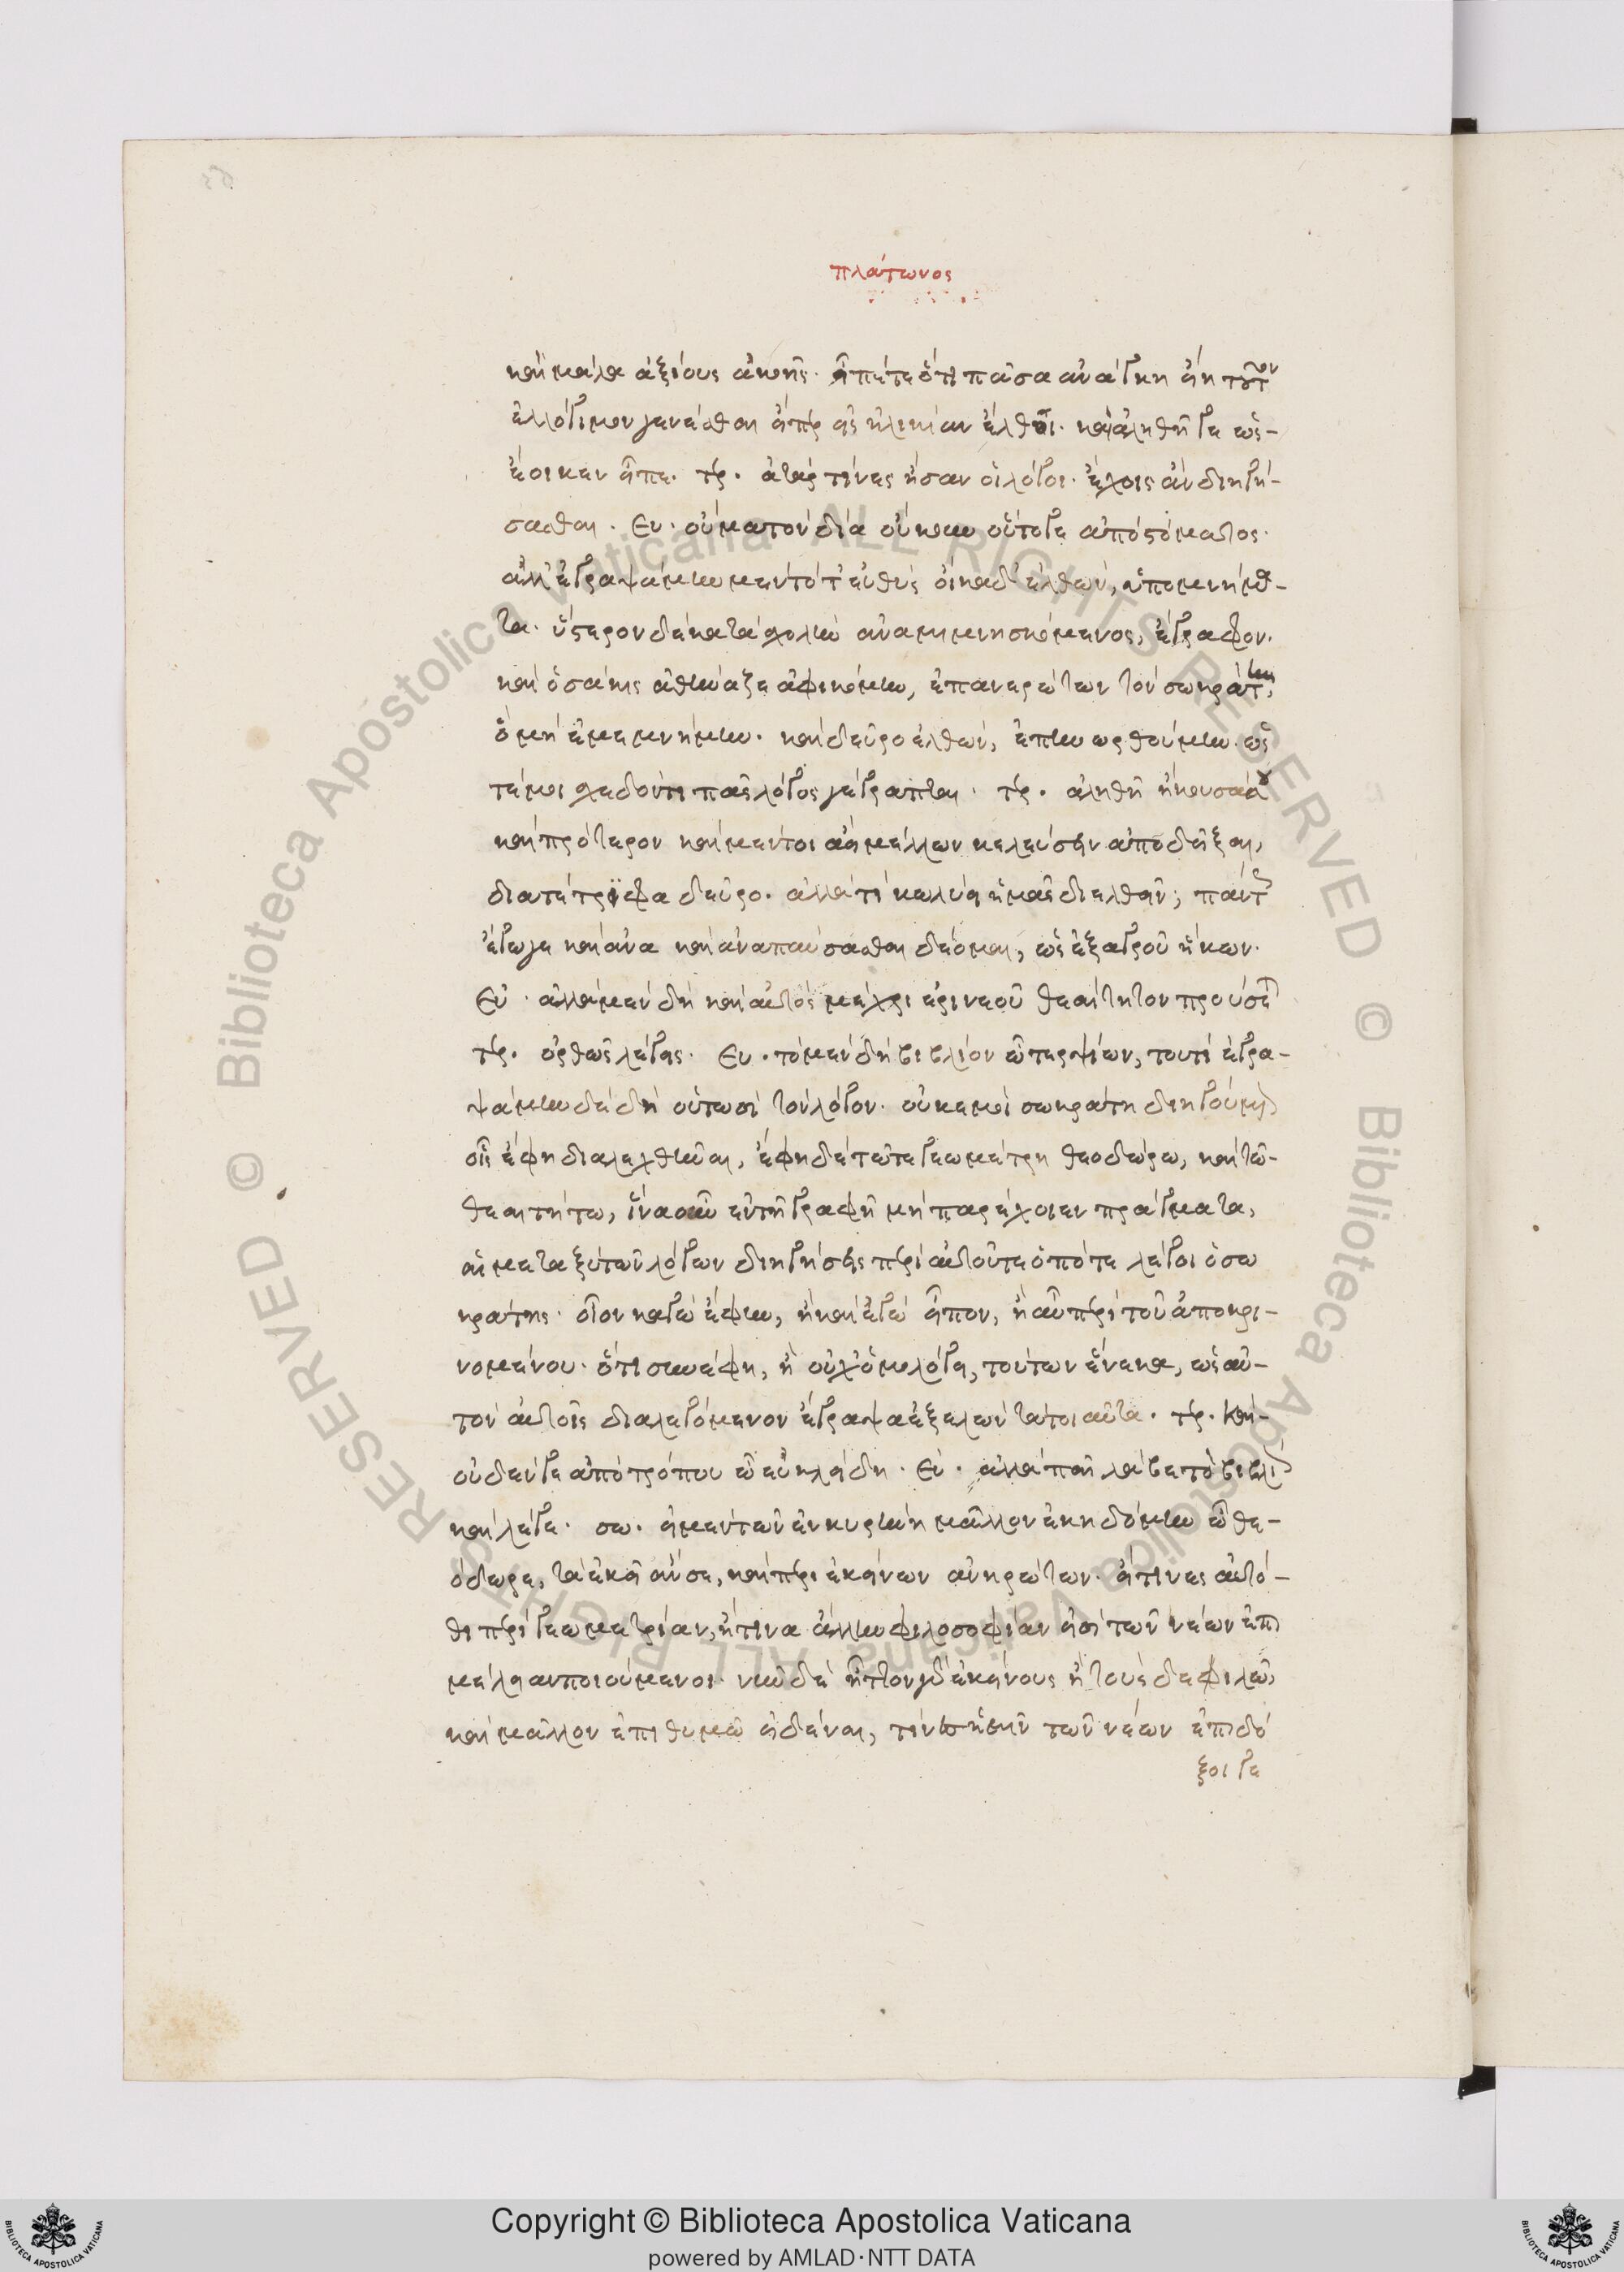 πλάτωνος
καὶ μάλα ἀξίους ἀκοῆς. εἶπέ τε ὅτι πᾶσα ἀνάγκη εἴη τοῦτον
ἐλλόγιμον γενέσθαι εἴπερ εἰς ἡλικίαν ἔλθοι. καὶ ἀληθῆ γε ὡς-
ἔοικεν εἶπε. τερ. ἀτὰρ τίνες ἦσαν οἱ λόγοι. ἔχοις ἂν διηγή-
σασθαι. Ευ. οὐ μὰ τὸν δία οὔκουν οὕτω γε ἀπὸ στόματος.
ἀλλ' ἐγραψάμην μὲν τότ' εὐθὺς οἴκαδ' ἐλθών, ὑπομνήμα-
τα. ὕστερον δὲ κατὰ σχολὴν ἀναμιμνησκόμενος, ἔγραφον.
καὶ ὁσάκις ἀθήναζε ἀφικοίμην, ἐπανερώτων τὸν σωκράτην,
ὃ μὴ ἐμεμνήμην. καὶ δεῦρο ἐλθών, ἐπηνωρθούμην. ὥς
τέ μοι σχεδόν τι πᾶς λόγος γέγραπται. τερ. ἀληθῆ ἤκουσά σου
καὶ πρότερον καὶ μέντοι ἀεὶ μέλλων κελεύσειν ἀποδεῖξαι,
διατέτριφα δεῦρο. ἀλλὰ τί κωλύει ἡμᾶς διελθεῖν; πάντως
ἔγωγε καὶ ἀνα καὶ ἀναπαύσασθαι δέομαι, ὡς ἐξ ἀγροῦ ἥκων.
Εὐ. ἀλλὰ μὲν δὴ καὶ αὐτὸς μέχρι ἐρινεοῦ θεαίτητον προύπεμ
τερ. ὀρθῶς λέγεις. Ευ. τὸ μὲν δὴ βιβλίον ὦ τερψίων, τουτί ἐγρα-
ψάμην δὲ δὴ οὑτωσὶ τὸν λόγον. οὐκ ἐμοὶ σωκράτη διηγούμενον
οἷς ἔφη διαλεχθῆναι, ἔφη δὲ τῶτε γεωμέτρη θεοδώρω, καὶ τῶ-
θεαιτήτω, ἵνα οὖν ἐν τῆ γραφῆ μὴ παρέχοιεν πράγματα,
αἱ μεταξὺ τῶν λόγων διηγήσεις περὶ αὐτοῦ τε ὁπότε λέγοι ὁ σω
κράτης. οἷον κἀγὼ ἔφην, ἢ καὶ ἐγὼ εἶπον, ἢ αὖ περὶ τοῦ ἀποκρι-
νομένου. ὅτι συνέφη, ἢ οὐχ ὡμολόγει, τούτων ἕνεκα, ὡς αὐ-
τὸν αὐτοῖς διαλεγόμενον ἔγραψα ἐξελὼν τὰ τοιαῦτα. τερ. καὶ-
οὐδέν γε ἀπὸ τρόπου ὦ εὐκλείδη. Εὐ. ἀλλὰ παῖ λάβε τὸ βιβλίον
καὶ λέγε. σω. εἰ μὲν τῶν ἐν κυρήνη μᾶλλον ἐκηδόμην ὦ θε-
όδωρε, τὰ ἐκεῖ ἄν σε, καὶ περὶ ἐκείνων ἀνηρώτων. εἴ τινες αὐτό-
θι περὶ γεωμετρίαν, ἤ τινα ἄλλην φιλοσοφίαν εἰσὶ τῶν νέων ἐπι
μέλειαν ποιούμενοι. νῦν δὲ ἧττον γὰρ ἐκείνους ἢ τούσδε φιλῶ,
καὶ μᾶλλον ἐπιθυμῶ εἰδέναι, τίνες ἡμῖν τῶν νέων ἐπιδό
ξοι γε
Copyright © Biblioteca Apostolica Vaticana
powered by AMLAD·NTT DATA